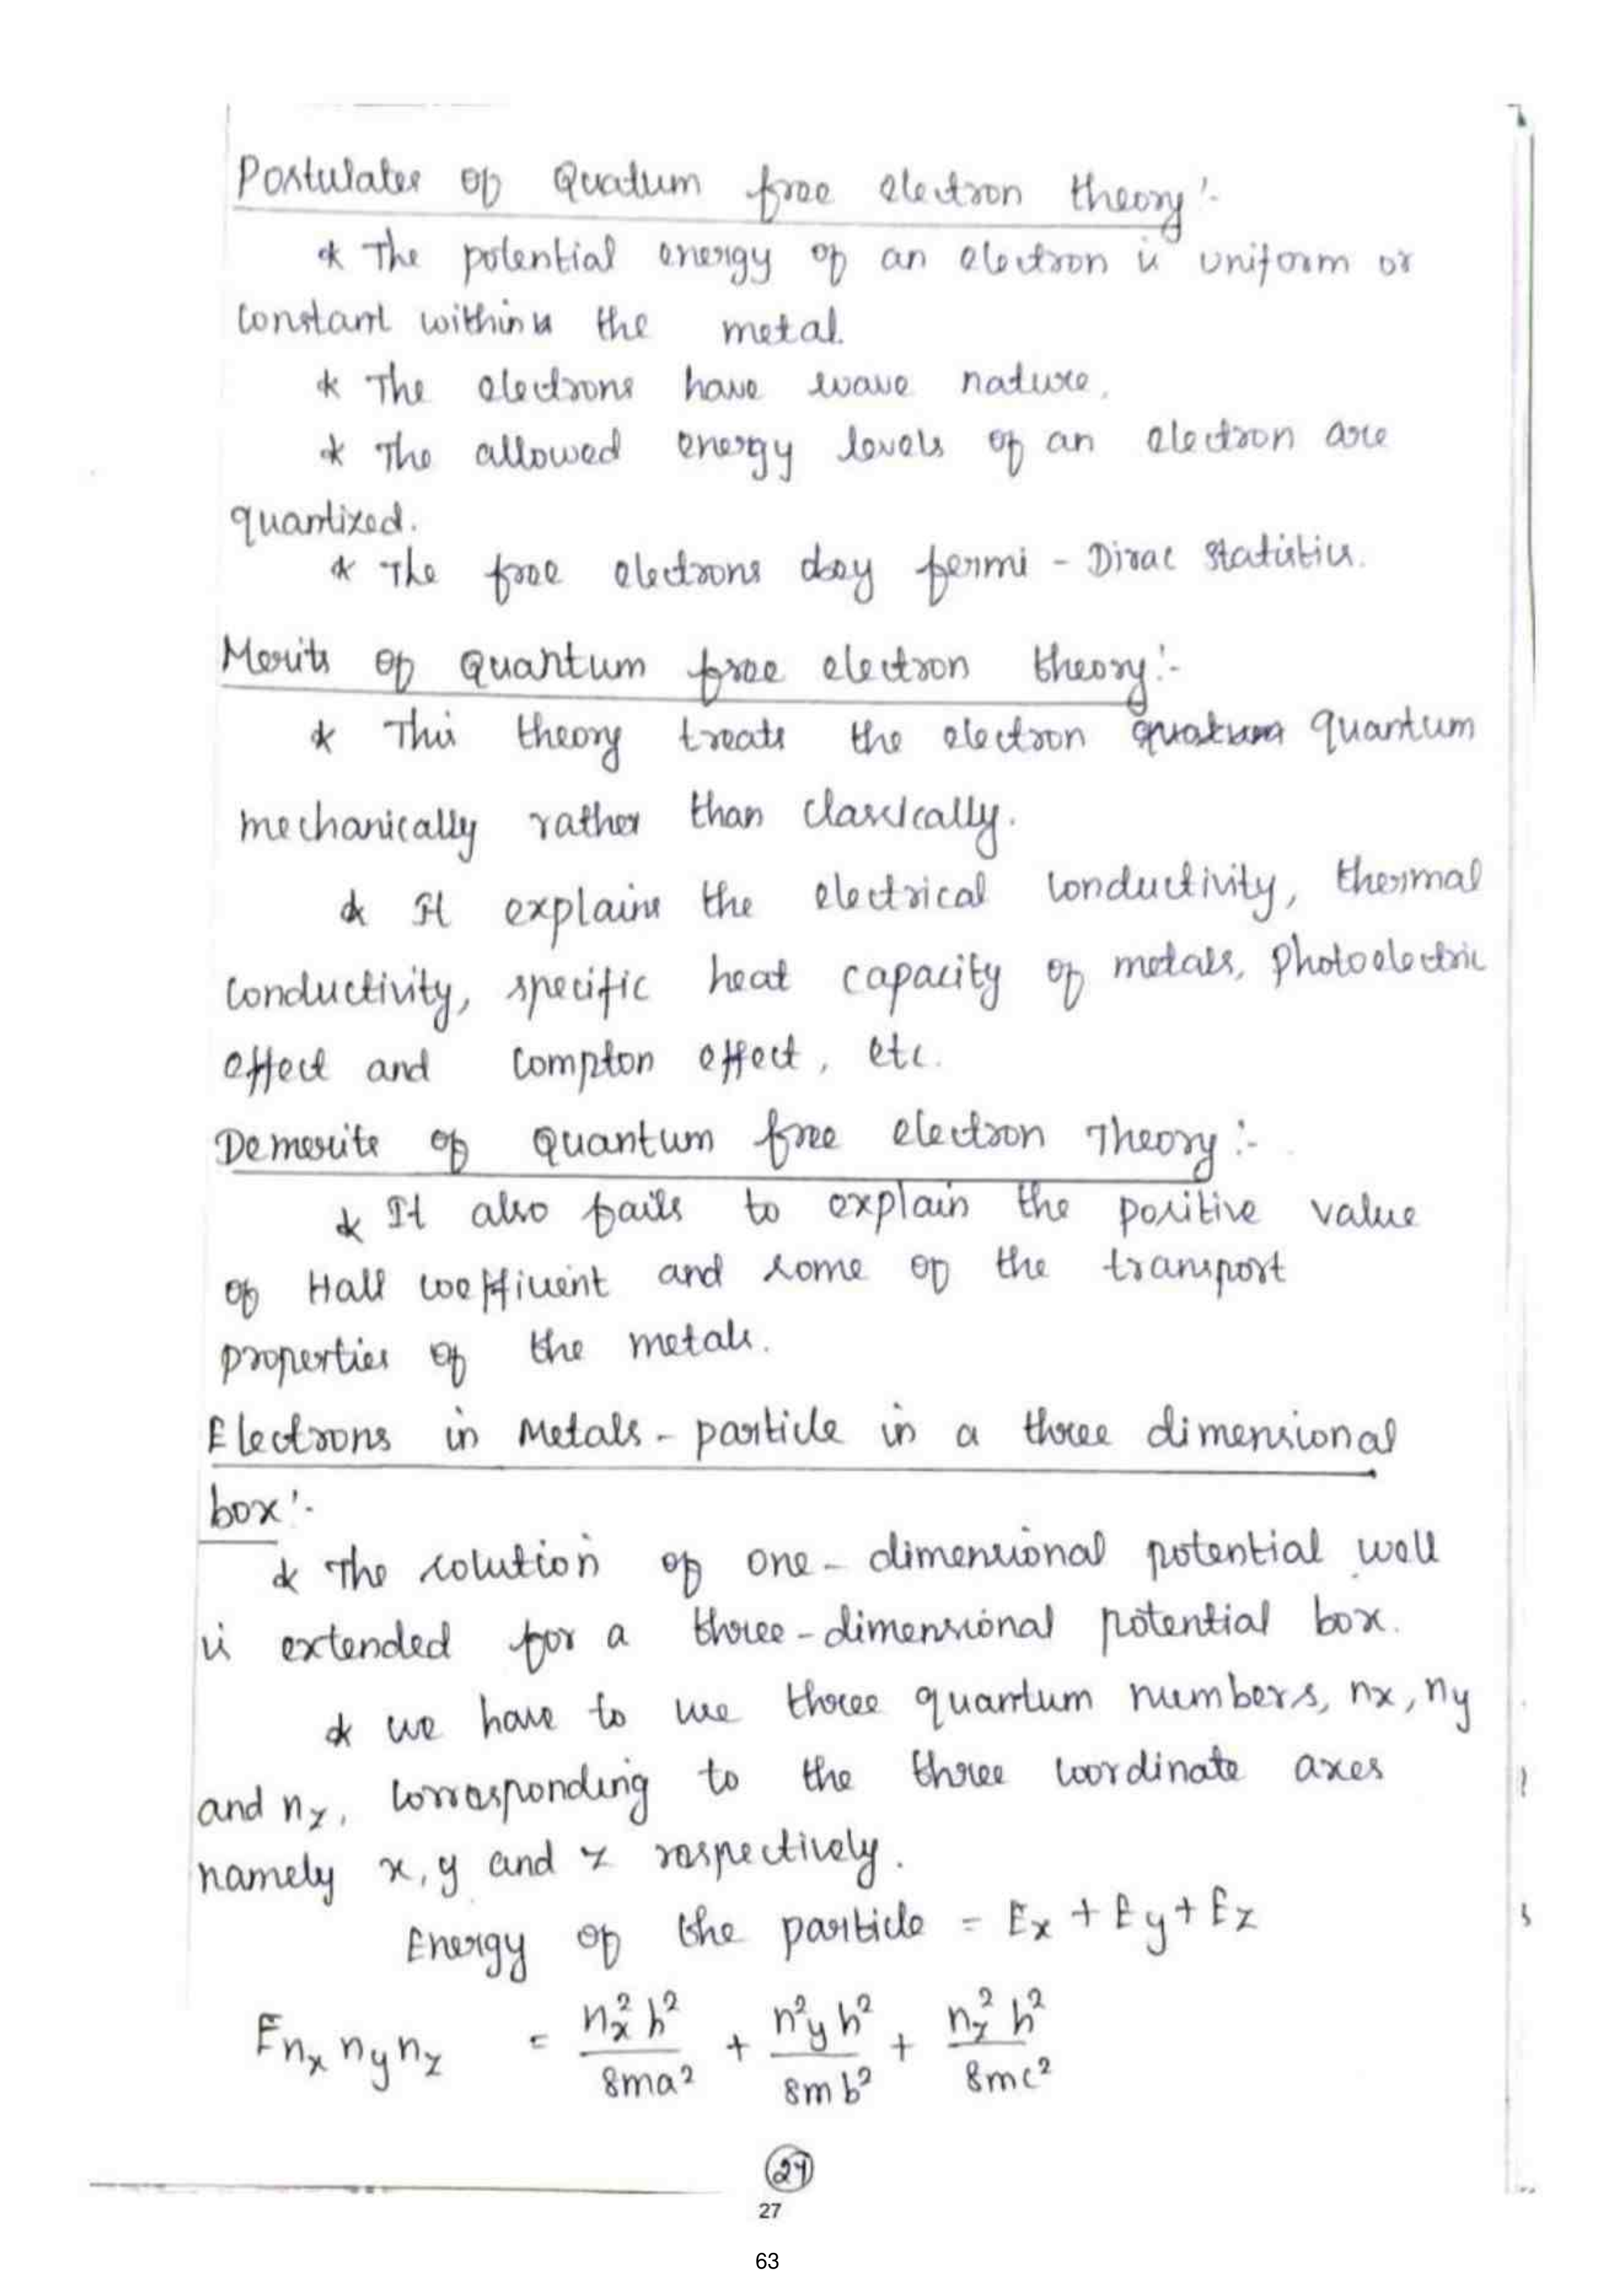 Postulates of Quatum free electron theory:-
* The potential energy of an electron is uniform or
constant within the metal.
* The electrons have wave nature.
* The allowed energy levels of an electron are
quantized.
* The free electrons obey fermi - Dirac Statistics.
Merits of Quantum free electron theory:-
* This theory treats the electron quantum
mechanically rather than classically.
* It explains the electrical conductivity, thermal
conductivity, specific heat capacity of metals, photoelectric
effect and Compton effect, etc.
Demerits of Quantum free electron Theory:-
* It also fails to explain the positive value
of Hall coefficient and some of the transport
properties of the metals.
Electrons in Metals - particle in a three dimensional
box:-
* The solution of one - dimensional potential well
is extended for a three - dimensional potential box.
* we have to use three quantum numbers, nx, ny
and nz, corresponding to the three coordinate axes
namely x, y and z respectively.
Energy of the particle = Ex + Ey + Ez
E nx ny nz = nx² h² / 8ma² + n²y h² / 8mb² + nz² h² / 8mc²
27
27
63